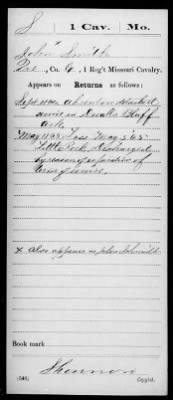 S 1 Cav. Mo.
John Smith
Pvt., Co. G, 1 Reg't Missouri Cavalry.
Appears on
Returns as follows:
Sept absent on detached
service in Duvalls Bluff
Ark.
May 1865 Loss May 5, 65
Little Rock Discharged
by reason of expiration of
term of service.
x also appears as John Schmidt
Book mark
Shannon
(546) Copyist.